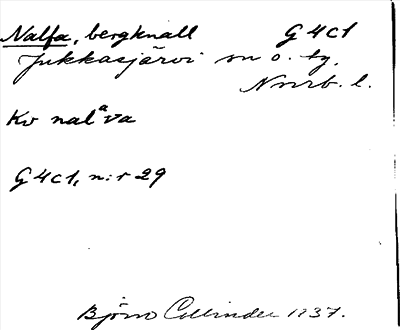 Nalfa, bergknall G4c1
Jukkasjärvi sn o. tg.
Nrrb. l.
Kv nalᵃva
G4c1, n:r 29
Björn Collinder 1937.